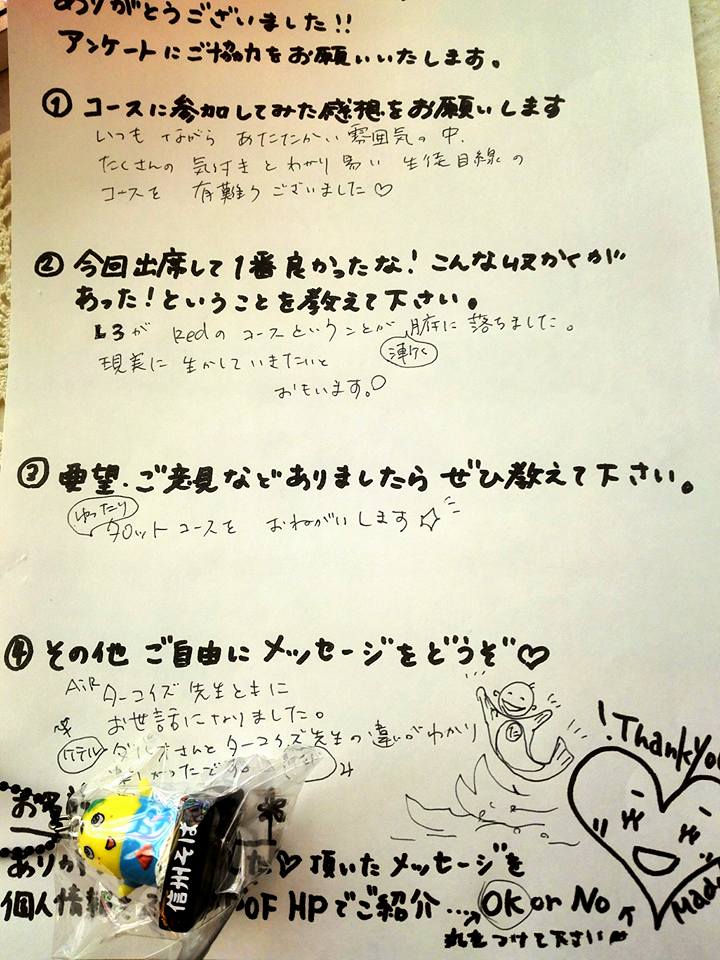 ありがとうございました!!
アンケートにご協力をお願いいたします。
① コースに参加してみた感想をお願いします
いつもながら あたたかい雰囲気の中、
たくさんの 気付きと わかり易い 生徒目線の
コースを 有難うございました♡
② 今回出席して1番良かったな!こんな収かくが
あった!ということを教えて下さい。
L3が Redの コースということが 腑に 落ちました。
漸く
現実に 生かしていきたいと
おもいます。
③ 要望・ご意見などありましたら ぜひ教えて下さい。
ゆったり
タロット コースを おねがいします☆
④ その他 ご自由に メッセージをどうぞ♡
AiR ターコイズ 先生ともに
お世話になりました。
ターコイズ先生の違いがわかり
た
Thank you
信州そば
頂いた メッセージを
個人情報
HPでご紹介...OK or No
丸をつけて下さい